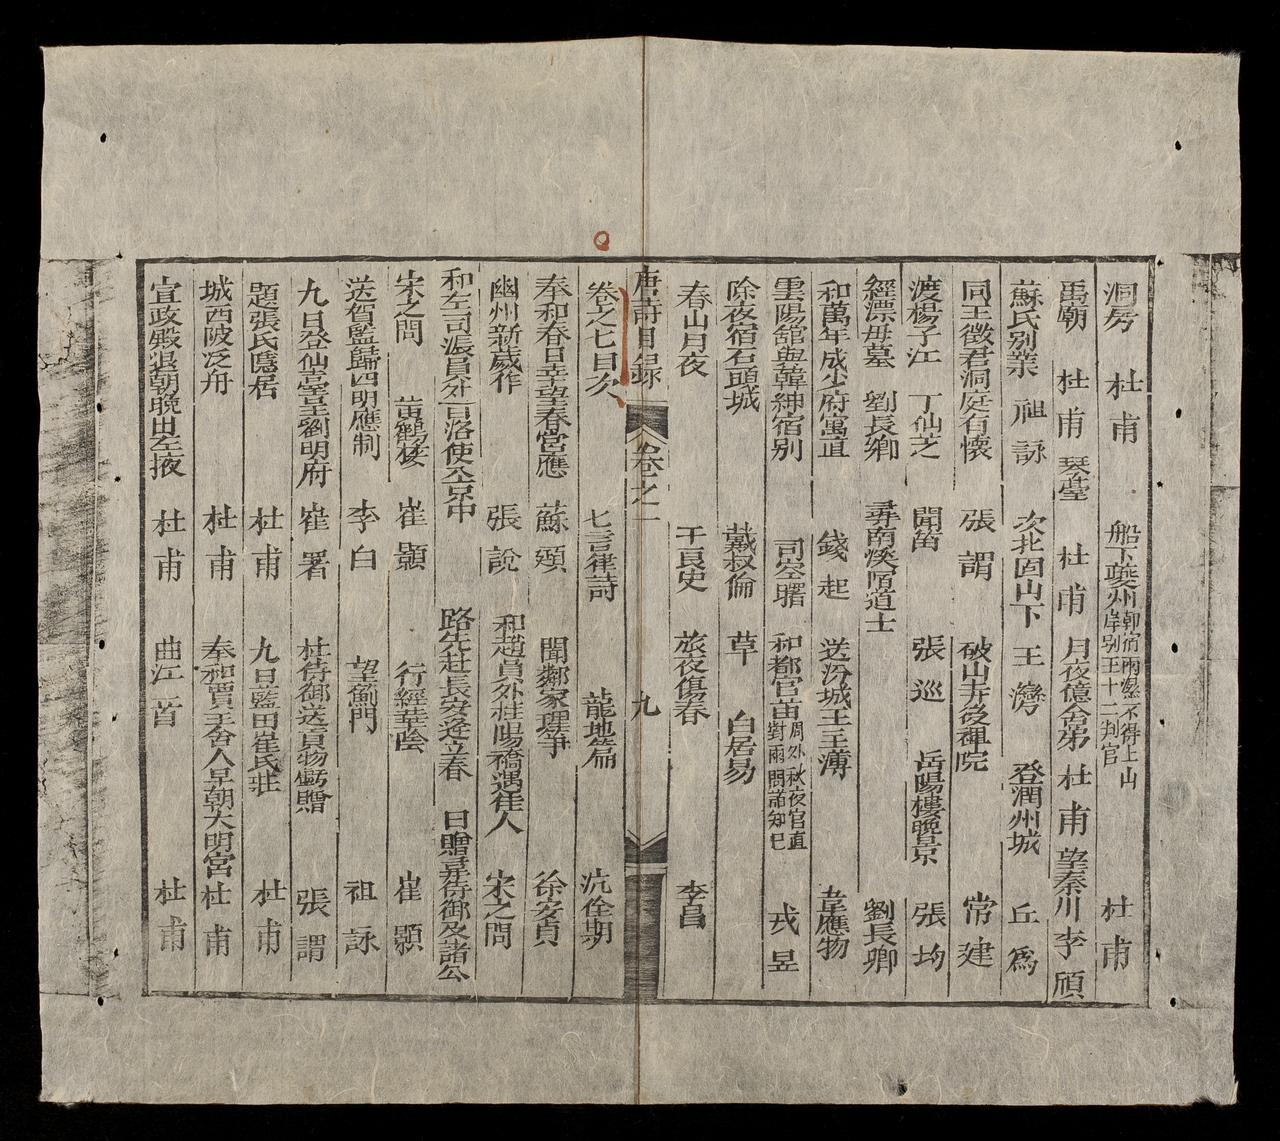 洞房 杜甫 船下夔州郭宿雨濕不得上岸別王十二判官 杜甫
禹廟 杜甫 琴臺 杜甫 月夜憶舍弟 杜甫 望秦川 李頎
蘇氏別業 祖詠 次北固山下 王灣 登潤州城 丘為
同王徵君洞庭有懷 張謂 破山寺後禪院 常建
渡楊子江 丁仙芝 聞笛 張巡 岳陽樓晚景 張均
經漂母墓 劉長卿 尋南溪常道士 劉長卿
和萬年成少府寓直 錢起 送汾城王主簿 韋應物
雲陽舘與韓紳宿別 司空曙 和都官苗員外秋夜省直對雨簡諸知己 戎昱
除夜宿石頭城 戴叔倫 草 白居易
春山月夜 于良史 旅夜傷春 李昌
唐詩目錄 卷之一 九
卷之七目次 七言律詩 龍池篇 沈佺期
奉和春日幸望春宮應 蘇頲 聞鄰家理箏 徐安貞
幽州新歲作 張說 和趙員外桂陽橋遇佳人 宋之問
和左司張員外自洛使入京中路先赴長安逢立春日贈韋侍御及諸公
宋之問 黃鶴樓 崔顥 行經華陰 崔顥
送賀監歸四明應制 李白 望薊門 祖詠
九日登仙臺呈劉明府 崔署 杜侍御送貢物戲贈 張謂
題張氏隱居 杜甫 九日藍田崔氏莊 杜甫
城西陂泛舟 杜甫 奉和賈至舍人早朝大明宮 杜甫
宣政殿退朝晚出左掖 杜甫 曲江二首 杜甫